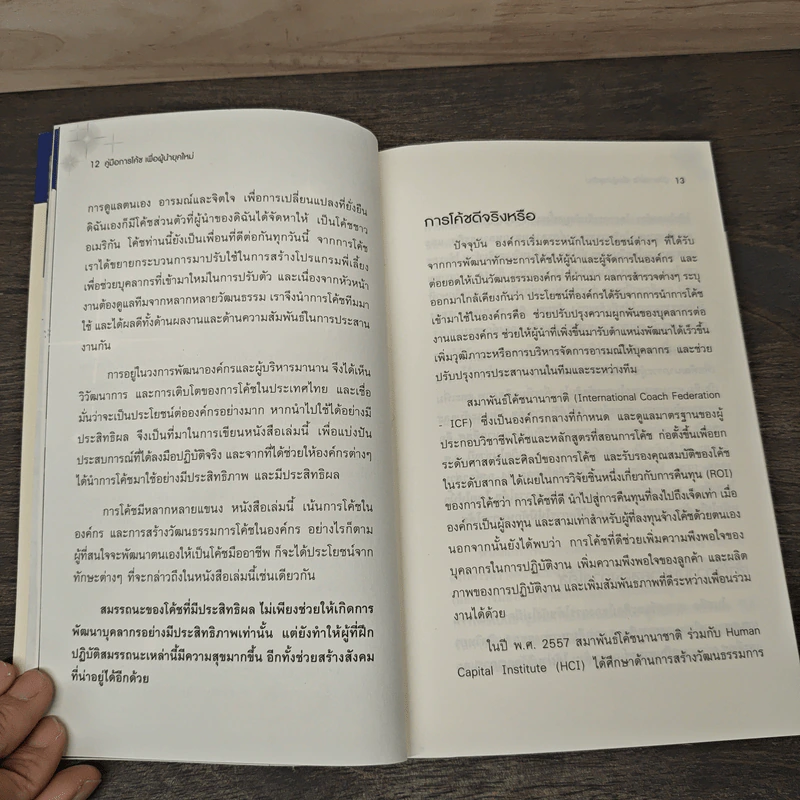 12 คู่มือการโค้ช เพื่อผู้นำยุคใหม่
การดูแลตนเอง อารมณ์และจิตใจ เพื่อการเปลี่ยนแปลงที่ยั่งยืน
ดิฉันเองก็มีโค้ชส่วนตัวที่ผู้นำของดิฉันได้จัดหาให้ เป็นโค้ชชาว
อเมริกัน โค้ชท่านนี้ยังเป็นเพื่อนที่ดีต่อกันทุกวันนี้ จากการโค้ช
เราได้ขยายกระบวนการมาปรับใช้ในการสร้างโปรแกรมพี่เลี้ยง
เพื่อช่วยบุคลากรที่เข้ามาใหม่ในการปรับตัว และเนื่องจากหัวหน้า
งานต้องดูแลทีมจากหลากหลายวัฒนธรรม เราจึงนำการโค้ชทีมมา
ใช้ และได้ผลดีทั้งด้านผลงานและด้านความสัมพันธ์ในการประสาน
งานกัน
การอยู่ในวงการพัฒนาองค์กรและผู้บริหารมานาน จึงได้เห็น
วิวัฒนาการ และการเติบโตของการโค้ชในประเทศไทย และเชื่อ
มั่นว่าจะเป็นประโยชน์ต่อองค์กรอย่างมาก หากนำไปใช้ได้อย่างมี
ประสิทธิผล จึงเป็นที่มาในการเขียนหนังสือเล่มนี้ เพื่อแบ่งปัน
ประสบการณ์ที่ได้ลงมือปฏิบัติจริง และจากที่ได้ช่วยให้องค์กรต่างๆ
ได้นำการโค้ชมาใช้อย่างมีประสิทธิภาพ และมีประสิทธิผล
การโค้ชมีหลากหลายแขนง หนังสือเล่มนี้ เน้นการโค้ชใน
องค์กร และการสร้างวัฒนธรรมการโค้ชในองค์กร อย่างไรก็ตาม
ผู้ที่สนใจจะพัฒนาตนเองให้เป็นโค้ชมืออาชีพ ก็จะได้ประโยชน์จาก
ทักษะต่างๆ ที่จะกล่าวถึงในหนังสือเล่มนี้เช่นเดียวกัน
สมรรถนะของโค้ชที่มีประสิทธิผล ไม่เพียงช่วยให้เกิดการ
พัฒนาบุคลากรอย่างมีประสิทธิภาพเท่านั้น แต่ยังทำให้ผู้ที่ฝึก
ปฏิบัติสมรรถนะเหล่านี้มีความสุขมากขึ้น อีกทั้งช่วยสร้างสังคม
ที่น่าอยู่ได้อีกด้วย
13
การโค้ชดีจริงหรือ
ปัจจุบัน องค์กรเริ่มตระหนักในประโยชน์ต่างๆ ที่ได้รับ
จากการพัฒนาทักษะการโค้ชให้ผู้นำและผู้จัดการในองค์กร และ
ต่อยอดให้เป็นวัฒนธรรมองค์กร ที่ผ่านมา ผลการสำรวจต่างๆ ระบุ
ออกมาใกล้เคียงกันว่า ประโยชน์ที่องค์กรได้รับจากการนำการโค้ช
เข้ามาใช้ในองค์กรคือ ช่วยปรับปรุงความผูกพันของบุคลากรต่อ
งานและองค์กร ช่วยให้ผู้นำที่เพิ่งขึ้นมารับตำแหน่งพัฒนาได้เร็วขึ้น
เพิ่มวุฒิภาวะหรือการบริหารจัดการอารมณ์ให้บุคลากร และช่วย
ปรับปรุงการประสานงานในทีมและระหว่างทีม
สมาพันธ์โค้ชนานาชาติ (International Coach Federation
- ICF) ซึ่งเป็นองค์กรกลางที่กำหนด และดูแลมาตรฐานของผู้
ประกอบวิชาชีพโค้ชและหลักสูตรที่สอนการโค้ช ก่อตั้งขึ้นเพื่อยก
ระดับศาสตร์และศิลป์ของการโค้ช และรับรองคุณสมบัติของโค้ช
ในระดับสากล ได้เผยในการวิจัยชิ้นหนึ่งเกี่ยวกับการคืนทุน (ROI)
ของการโค้ชว่า การโค้ชที่ดี นำไปสู่การคืนทุนที่ลงไปถึงเจ็ดเท่า เมื่อ
องค์กรเป็นผู้ลงทุน และสามเท่าสำหรับผู้ที่ลงทุนจ้างโค้ชด้วยตนเอง
นอกจากนั้นยังได้พบว่า การโค้ชที่ดีช่วยเพิ่มความพึงพอใจของ
บุคลากรในการปฏิบัติงาน เพิ่มความพึงพอใจของลูกค้า และผลิต
ภาพของการปฏิบัติงาน และเพิ่มสัมพันธภาพที่ดีระหว่างเพื่อนร่วม
งานได้ด้วย
ในปี พ.ศ. 2557 สมาพันธ์โค้ชนานาชาติ ร่วมกับ Human
Capital Institute (HCI) ได้ศึกษาด้านการสร้างวัฒนธรรมการ